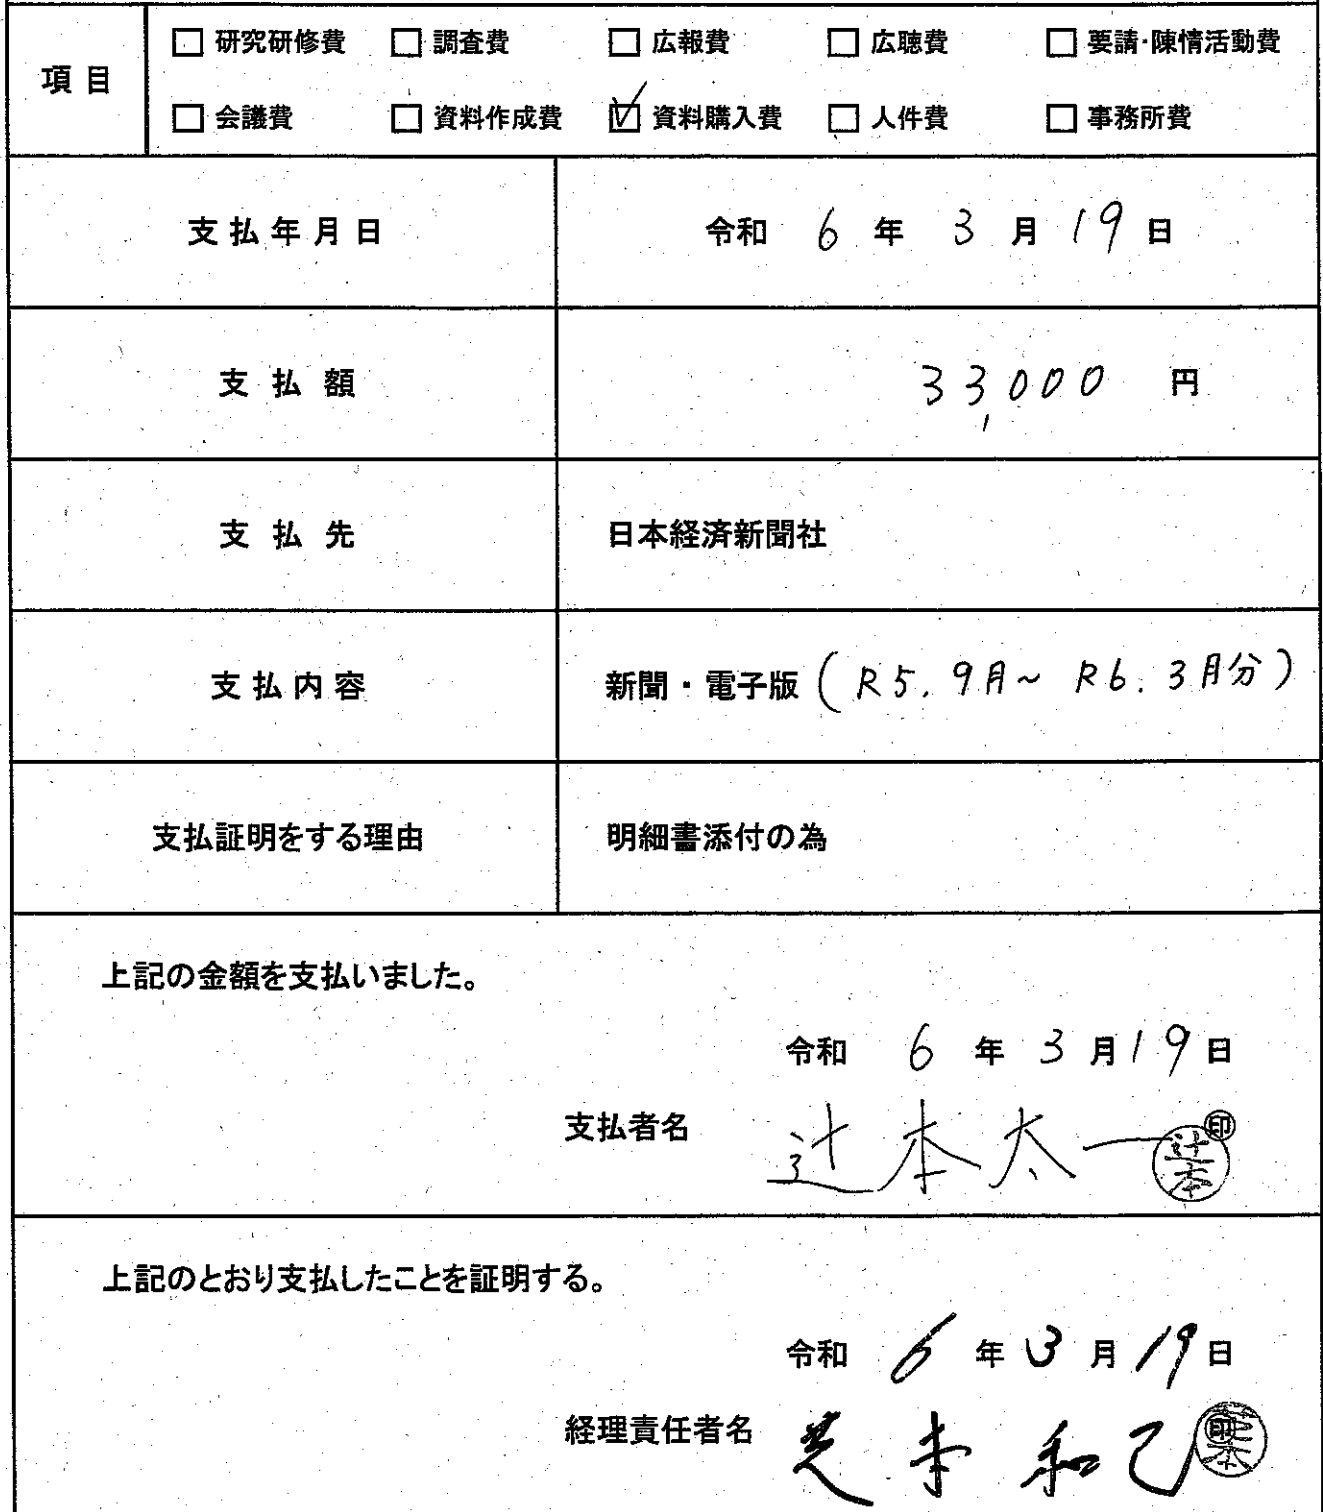 項目
□ 研究研修費 □ 調査費 □ 広報費 □ 広聴費 □ 要請・陳情活動費
□ 会議費 □ 資料作成費 ☑ 資料購入費 □ 人件費 □ 事務所費
支払年月日 令和 6 年 3 月 19 日
支払額 33,000 円
支払先 日本経済新聞社
支払内容 新聞・電子版 (R5.9月~ R6.3月分)
支払証明をする理由 明細書添付の為
上記の金額を支払いました。
令和 6 年 3 月 19 日
支払者名 辻本太一 ㊞ 辻本
上記のとおり支払したことを証明する。
令和 6 年 3 月 19 日
経理責任者名 芝本和己 ㊞